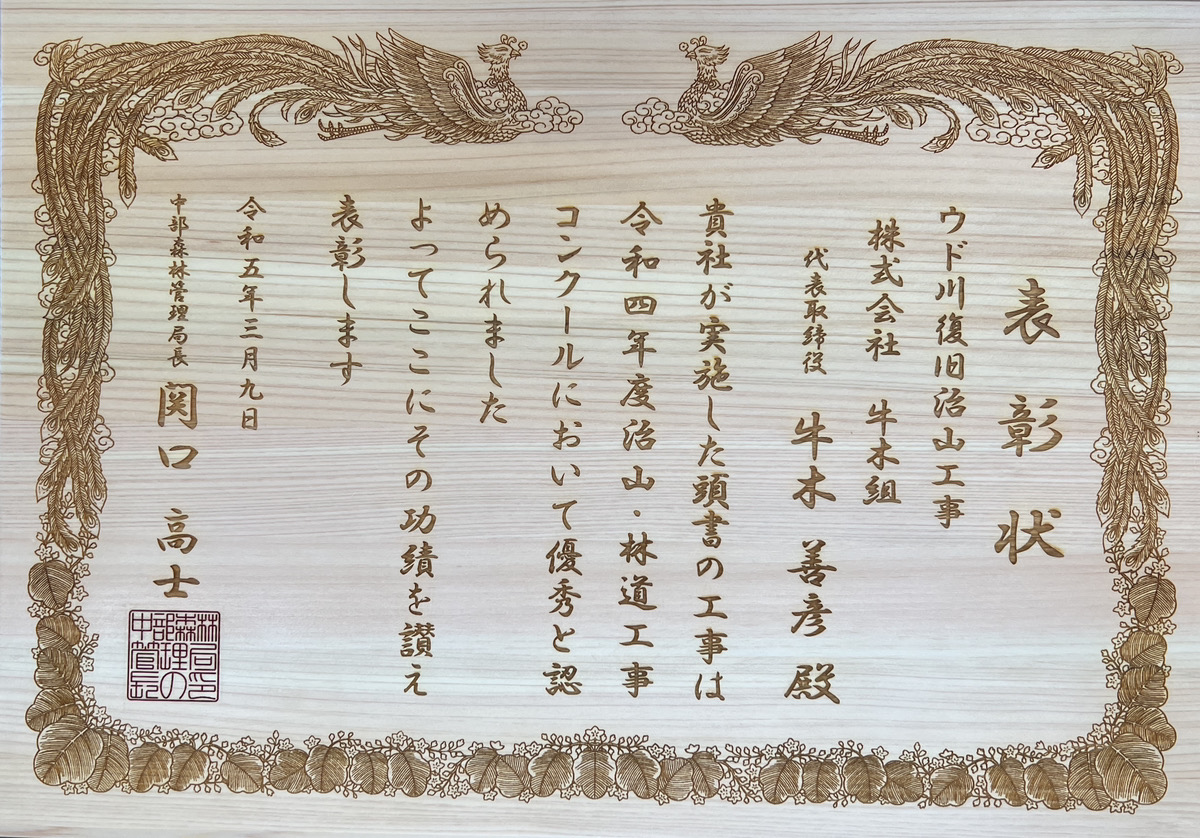 表彰状
ウド川復旧治山工事
株式会社 牛木組
代表取締役 牛木 善彦 殿
貴社が実施した頭書の工事は
令和四年度治山・林道工事
コンクールにおいて優秀と認
められました
よってここにその功績を讃え
表彰します
令和五年三月九日
中部森林管理局長 関口 高士
中部森林管理局長の印